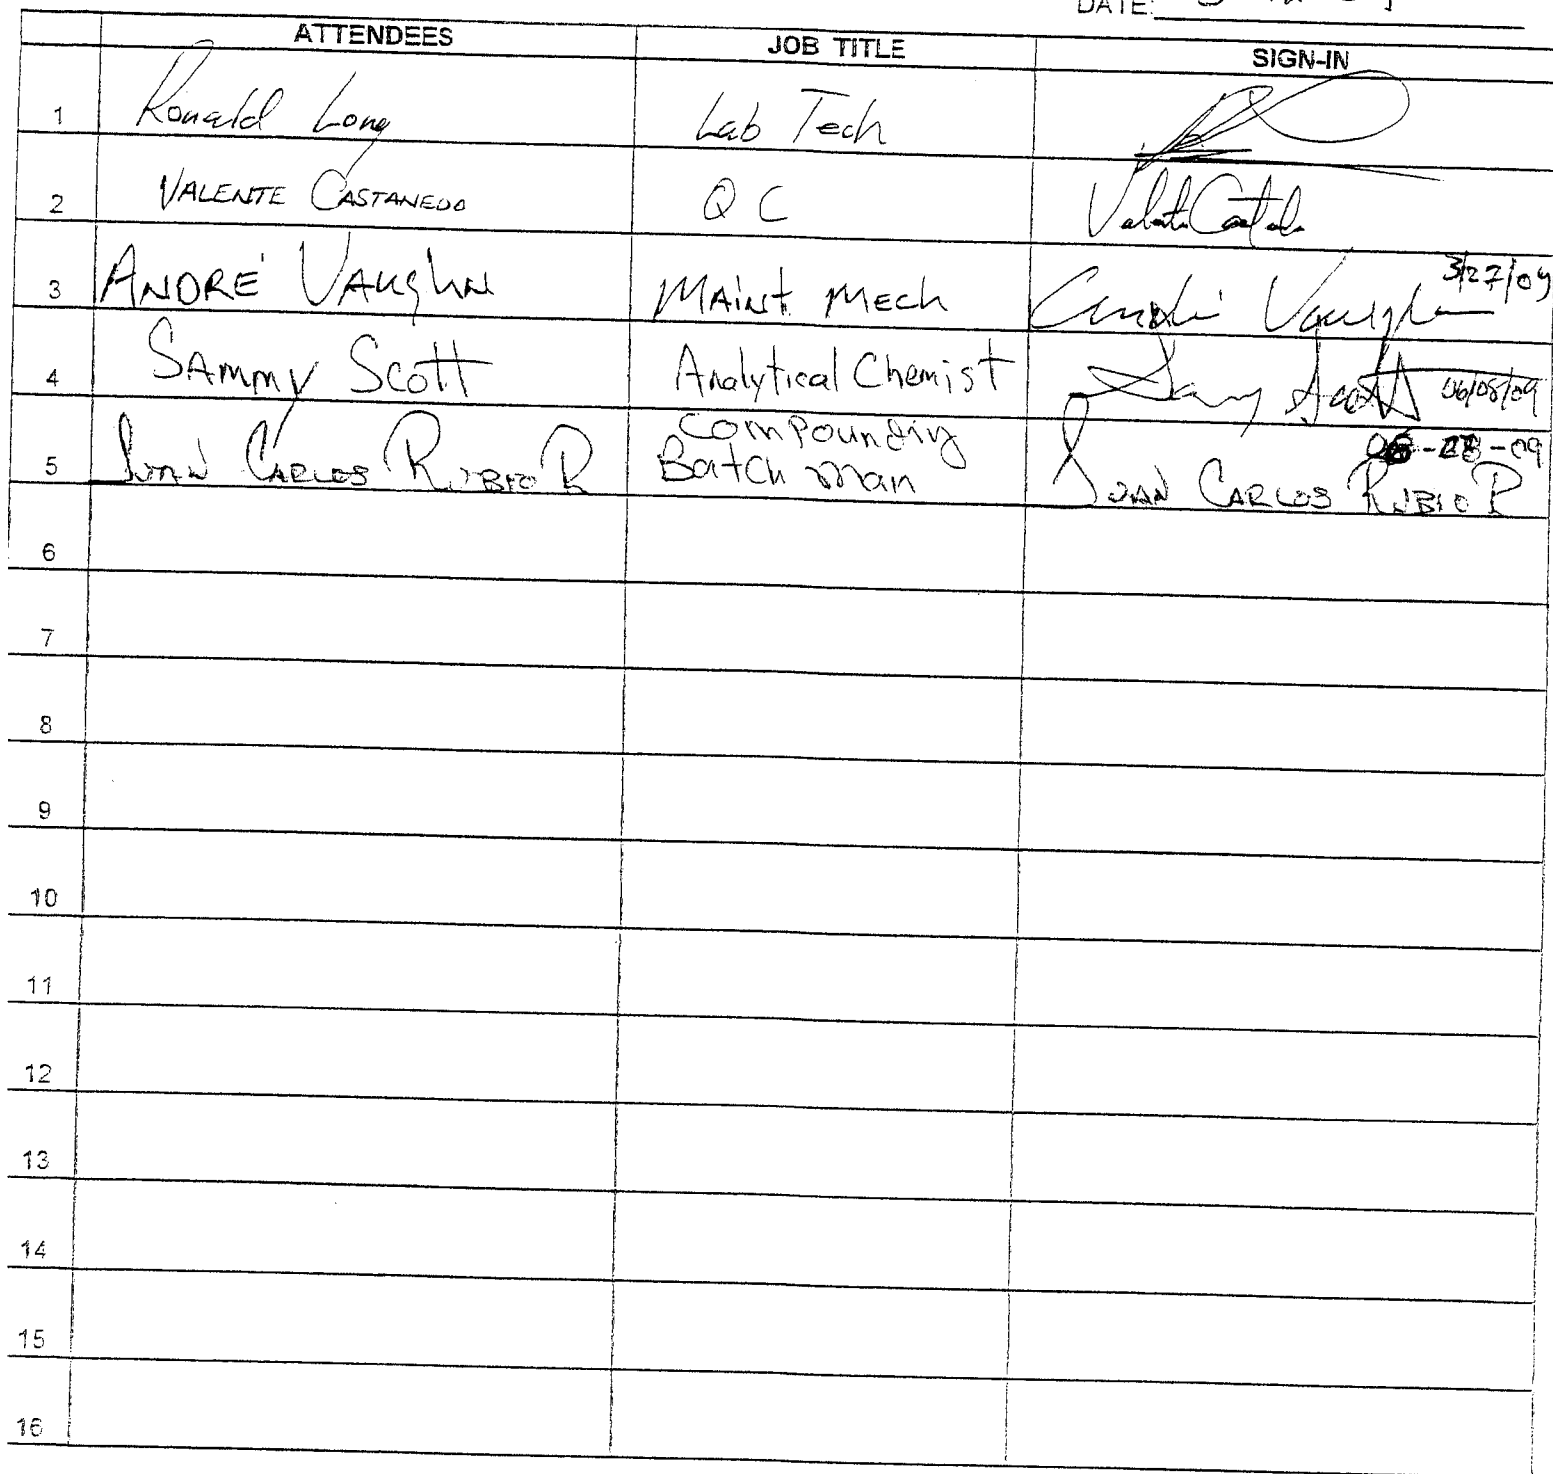 DATE:
ATTENDEES JOB TITLE SIGN-IN
1 Ronald Long Lab Tech
2 VALENTE CASTANEDO Q C
3 ANDRÉ VAUGHN MAINT MECH André Vaughn 3/27/09
4 SAMMY SCOTT Analytical Chemist Sammy Scott 06/08/09
Compounding
5 JUAN CARLOS RUBIO R Batch man JUAN CARLOS RUBIO R
6
7
8
9
10
11
12
13
14
15
16